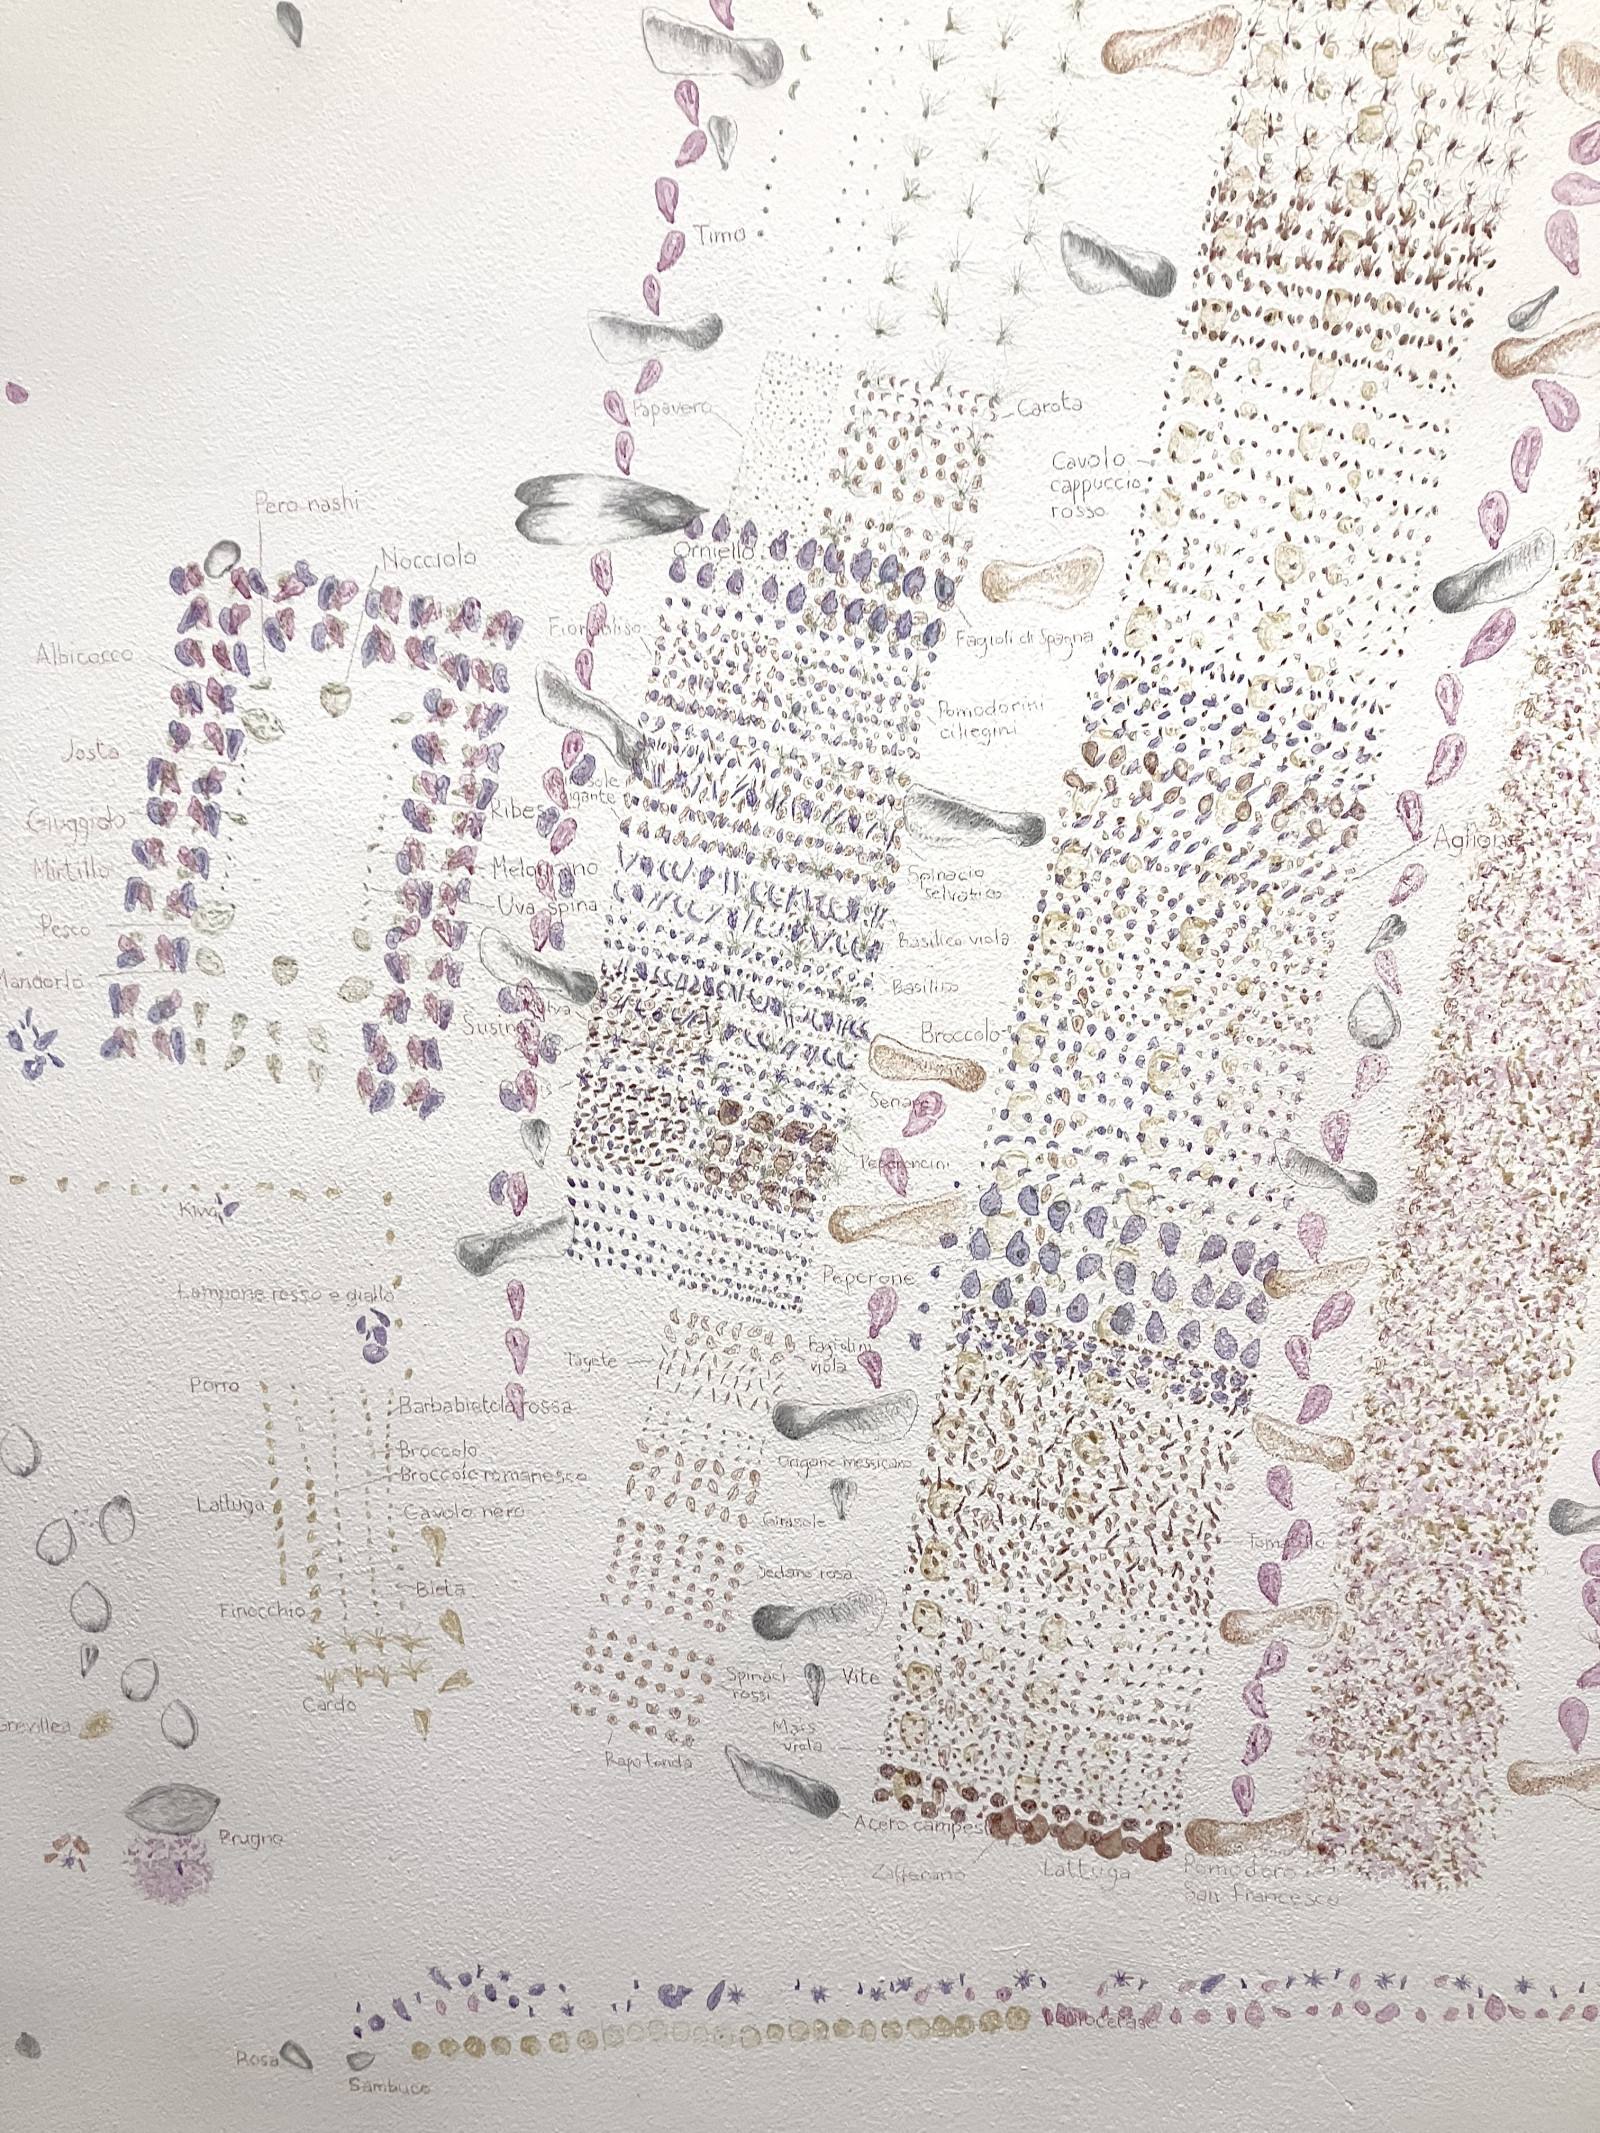 Timo
Papavero
Carota
Cavolo
cappuccio
rosso
Pero nashi
Nocciolo
Orniello
Fiordaliso
Fagioli di Spagna
Albicocco
Pomodorini
ciliegini
Josta
gigante
Ribes
Giuggiolo
Aglione
Mirtillo
Melograno
Spinacio
selvatico
Uva spina
Pesco
Basilico viola
Mandorlo
Basilico
Susino
Broccolo
Senape
Peperoncini
Kiwi
Peperone
Lampone rosso e giallo
Tagete
Fagiolini
viola
Porro
Barbabietola rossa
Broccolo
Broccolo romanesco
Origano messicano
Lattuga
Cavolo nero
Girasole
Sedano rosa
Bieta
Finocchio
Spinaci
rossi
Vite
Cardo
Mais
viola
Grevillea
Rapa tonda
Prugno
Acero campestre
Zafferano
Lattuga
Pomodoro
San Francesco
Lauroceraso
Rosa
Sambuco